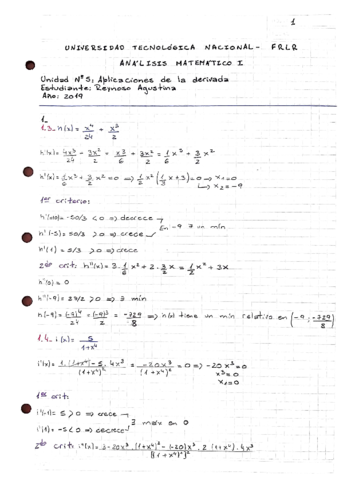 1
UNIVERSIDAD TECNOLÓGICA NACIONAL- FRLR
ANÁLISIS MATEMÁTICO I
Unidad N°5: Aplicaciones de la derivada
Estudiante: Reynoso Agustina
Año: 2019
1_
1.3_ h(x) = x⁴/24 + x³/2
h'(x) = 4x³/24 + 3x²/2 = x³/6 + 3x²/2 = 1/6 x³ + 3/2 x²
h'(x) = 1/6 x³ + 3/2 x² = 0 ⇒ 1/2 x² (1/3 x + 3) = 0 ⇒ x₁ = 0
↳ x₂ = -9
1er criterio:
h'(-10) = -50/3 < 0 ⇒ decrece
h'(-5) = 50/3 > 0 ⇒ crece
En -9 ∃ un mín
h'(1) = 5/3 > 0 ⇒ crece
2do crit: h''(x) = 3 · 1/6 x² + 2 · 3/2 x = 1/2 x² + 3x
h''(0) = 0
h''(-9) = 27/2 > 0 ⇒ ∃ mín
h(-9) = (-9)⁴/24 + (-9)³/2 = -729/8 ⇒ h(x) tiene un mín relativo en (-9; -729/8)
1.4_ i(x) = 5/(1+x⁴)
i'(x) = (1+x⁴) - 5 · 4x³/(1+x⁴)² = -20x³/(1+x⁴)² = 0 ⇒ -20x³ = 0
x³ = 0
x₁ = 0
1er crit:
i'(-1) = 5 > 0 ⇒ crece
∃ máx en 0
i'(1) = -5 < 0 ⇒ decrece
2do crit: i''(x) = · (1+x⁴)² - (-20)x³ · 2 (1+x⁴) · 4x³/[(1+x⁴)²]²